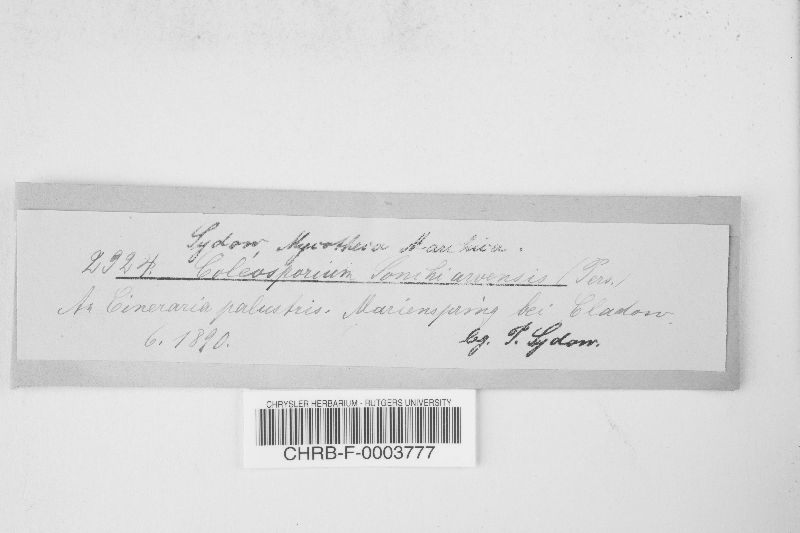 Sydow Mycotheca Marchica.
2924. Coleosporium Sonchi arvensis (Pers.)
An Cineraria palustris. Marienspring bei Cladow.
6. 1890. leg. P. Sydow.
CHRYSLER HERBARIUM - RUTGERS UNIVERSITY
CHRB-F-0003777